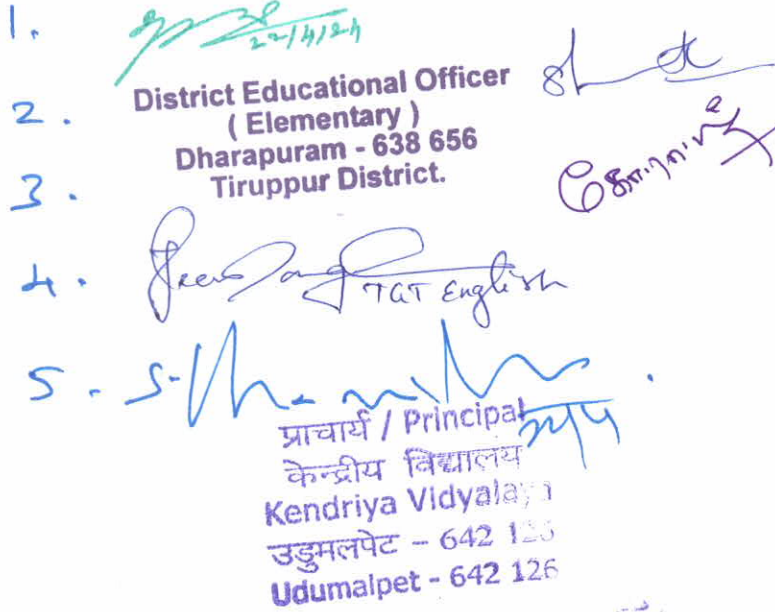 1.
22/4/24
District Educational Officer
2.
( Elementary )
Dharapuram - 638 656
3.
Tiruppur District.
4.
TGT English
5.
प्राचार्य / Principal
केन्द्रीय विद्यालय
Kendriya Vidyalaya
उडुमलपेट – 642 126
Udumalpet - 642 126